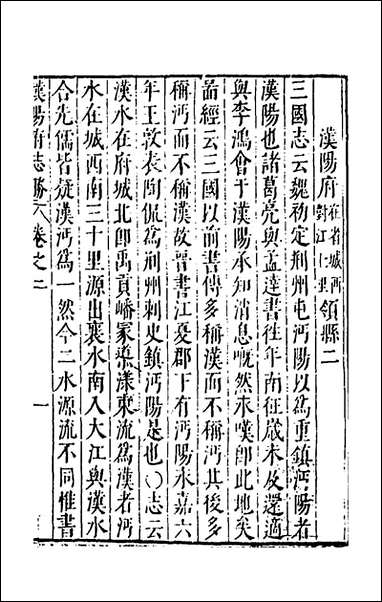 漢陽府在省城西對江七里領縣二
三國志云魏初定荆州屯沔陽以爲重鎮沔陽者
漢陽也諸葛亮與孟達書往年南征歲未及還適
與李鴻會于漢陽承知消息慨然永嘆即此地矣
酋經云三國以前書傳多稱漢而不稱沔其後多
稱沔而不稱漢故晉書江夏郡下有沔陽永嘉六
年王敦表陶侃爲荆州刺史鎮沔陽是也〇志云
漢水在府城北即禹貢嶓冢導漾東流爲漢者沔
水在城西南三十里源出襄水南入大江與漢水
合先儒皆疑漢沔爲一然今二水源流不同惟書
漢陽府志勝 卷之二 一